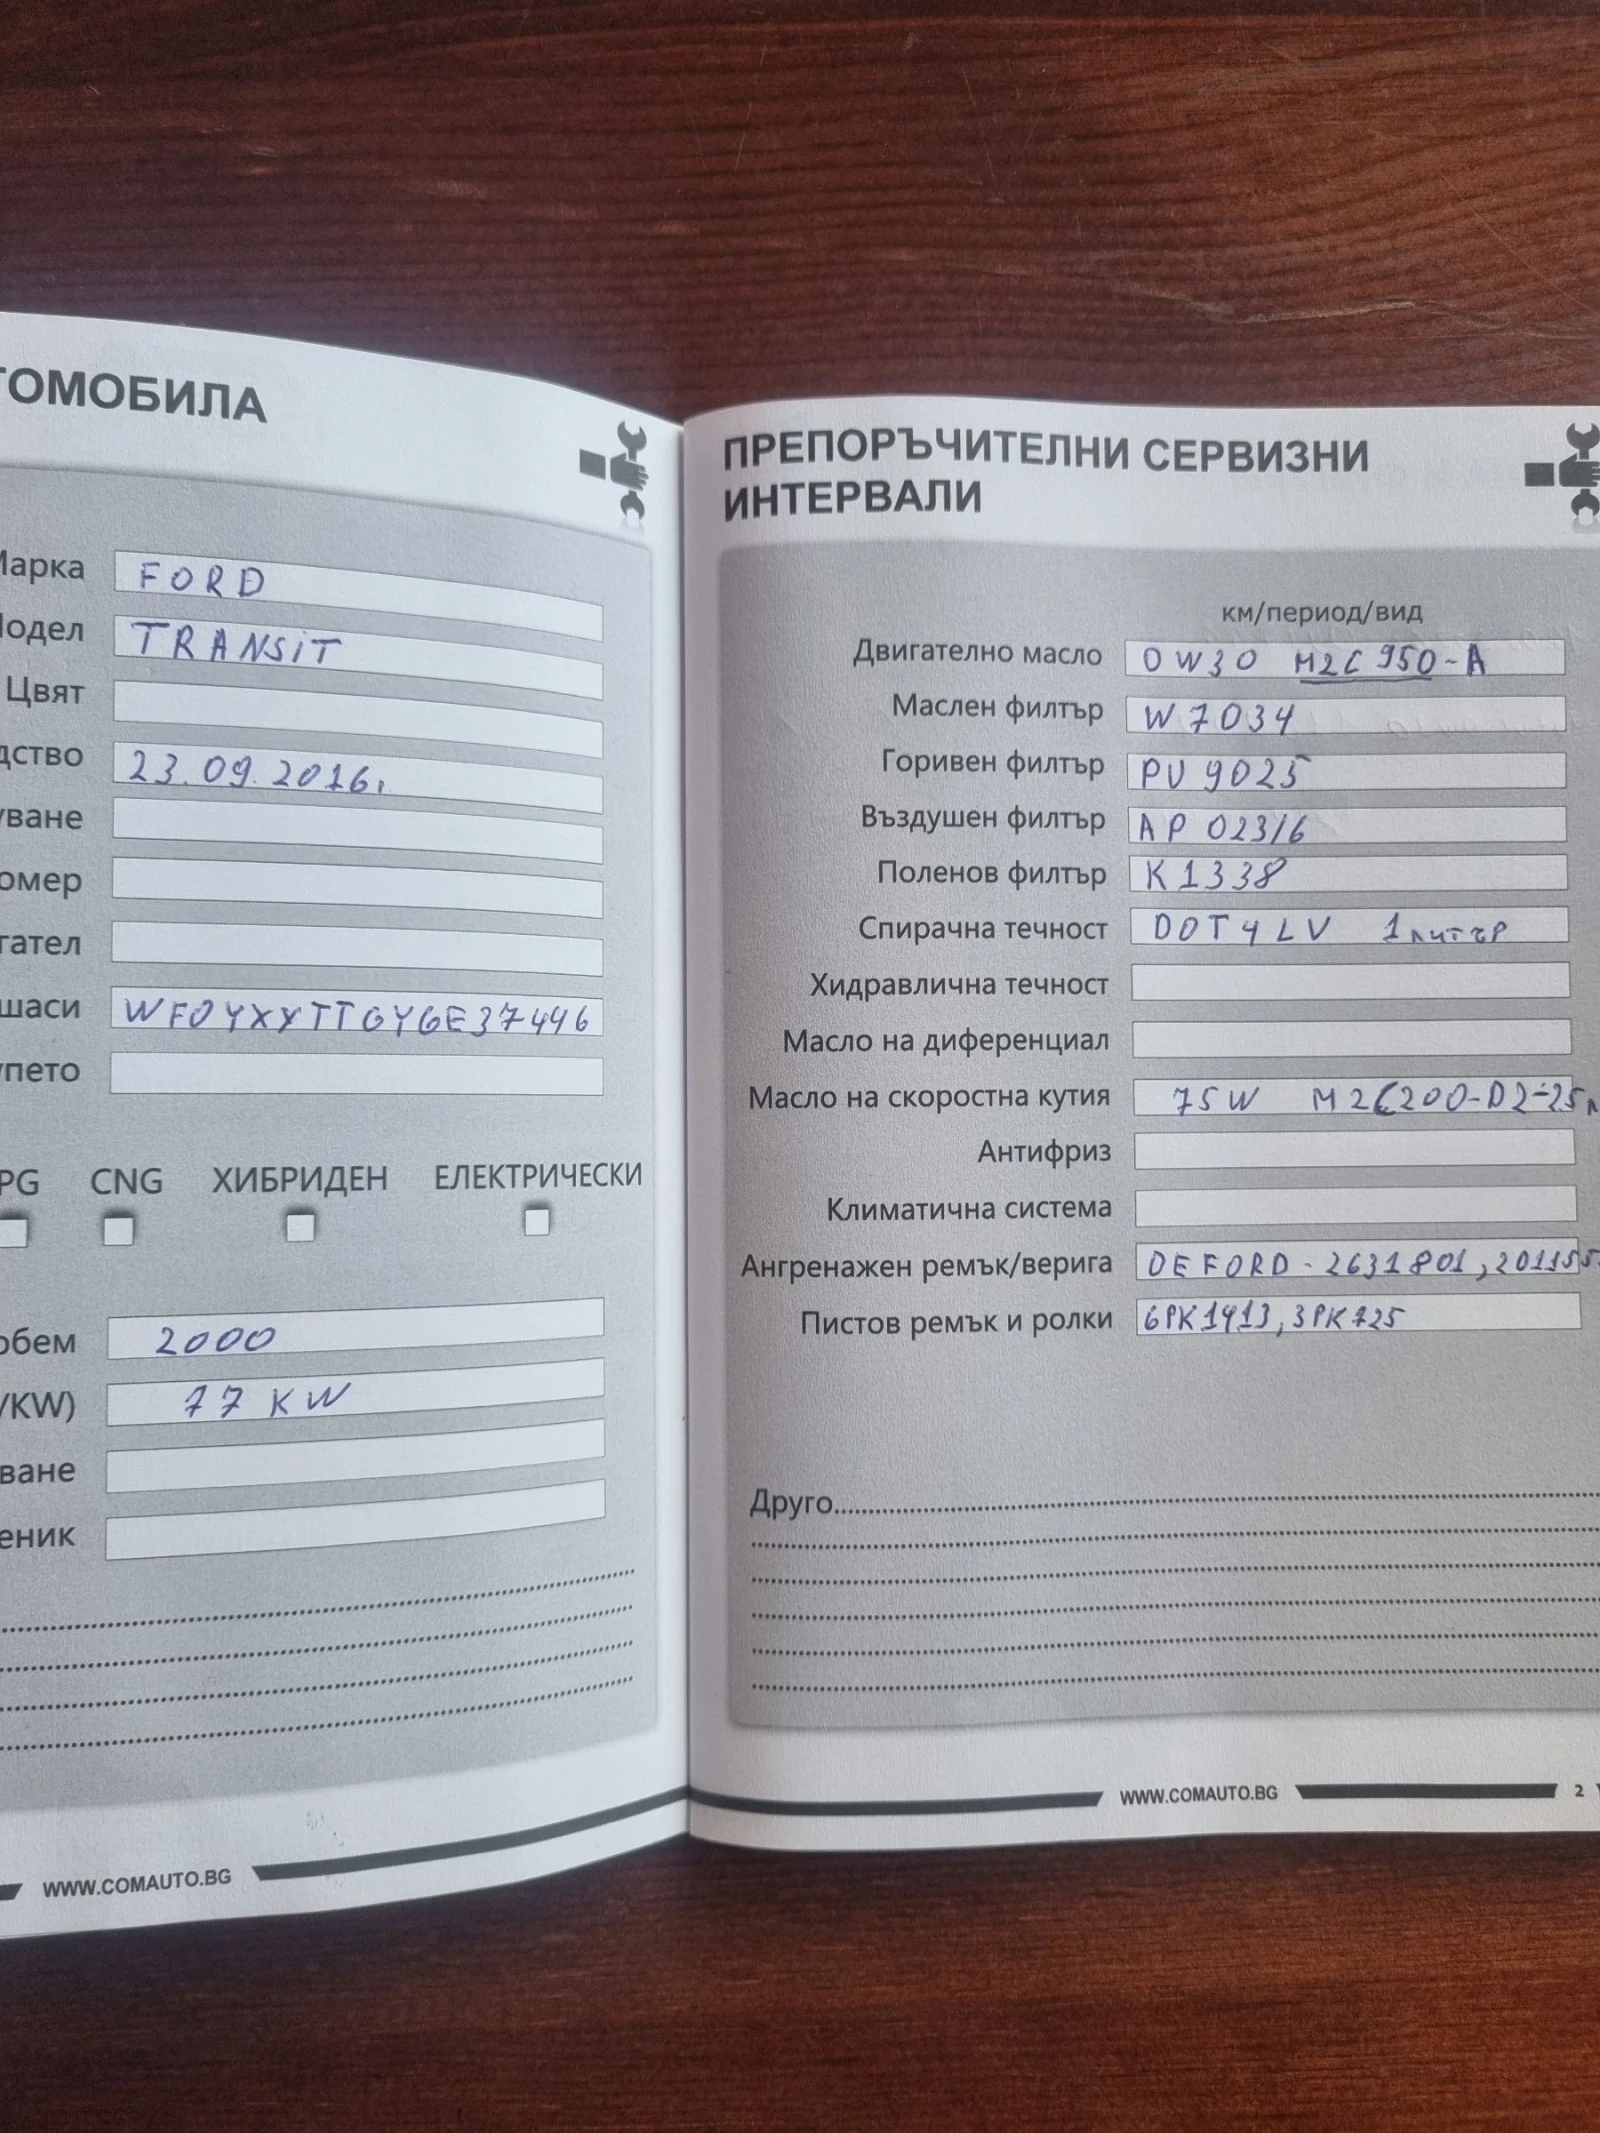 ТОМОБИЛА
Марка FORD
Модел TRANSiT
Цвят
дство 23.09.2016г.
уване
омер
гател
шаси WF0YXXTTGYGE37446
упето
PG CNG ХИБРИДЕН ЕЛЕКТРИЧЕСКИ
обем 2000
/KW) 77 KW
ване
еник
WWW.COMAUTO.BG
ПРЕПОРЪЧИТЕЛНИ СЕРВИЗНИ
ИНТЕРВАЛИ
км/период/вид
Двигателно масло 0W30 M2C950-A
Маслен филтър W7034
Горивен филтър PU 9025
Въздушен филтър AP 023/6
Поленов филтър K1338
Спирачна течност DOT4LV 1литър
Хидравлична течност
Масло на диференциал
Масло на скоростна кутия 75W M2C200-D2-25л
Антифриз
Климатична система
Ангренажен ремък/верига OE FORD - 2631801, 201155
Пистов ремък и ролки 6PK1413, 3PK725
Друго
WWW.COMAUTO.BG 2